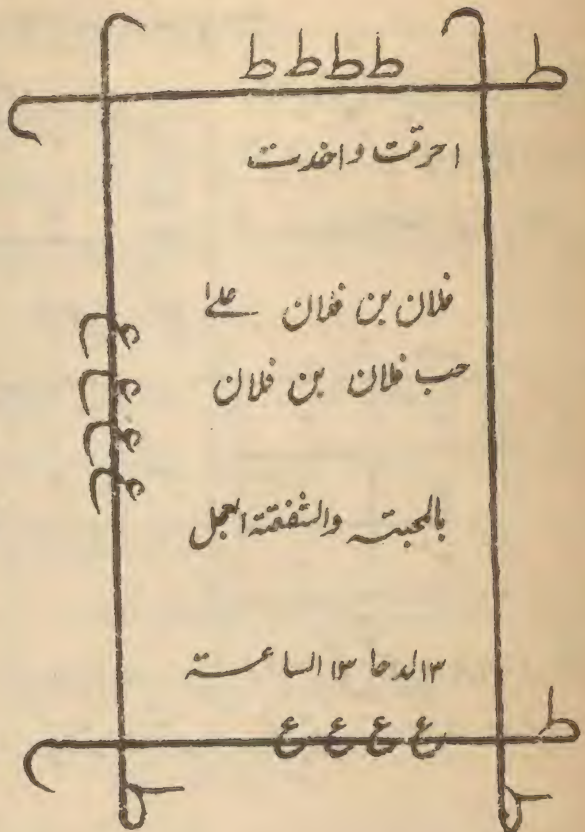 ط ط ط ط ط
احرقت واخدت
فلان بن فلان علے
حب فلان بن فلان
بالمحبتہ والشفقتہ العجل
۱۳ الدحا ۱۳ الساعتہ
ع ع ع ع
ع ع ع ع
ط